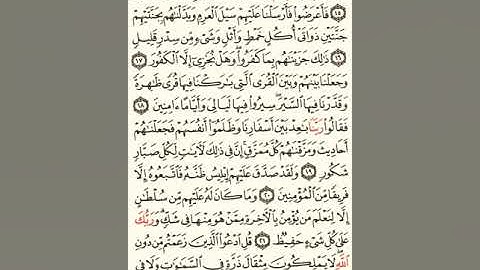 ١٥ فَأَعْرَضُوا۟ فَأَرْسَلْنَا عَلَيْهِمْ سَيْلَ ٱلْعَرِمِ وَبَدَّلْنَٰهُم بِجَنَّتَيْهِمْ
جَنَّتَيْنِ ذَوَاتَىْ أُكُلٍ خَمْطٍ وَأَثْلٍ وَشَىْءٍ مِّن سِدْرٍ قَلِيلٍ
١٦ ذَٰلِكَ جَزَيْنَٰهُم بِمَا كَفَرُوا۟ وَهَلْ نُجَٰزِىٓ إِلَّا ٱلْكَفُورَ ١٧
وَجَعَلْنَا بَيْنَهُمْ وَبَيْنَ ٱلْقُرَى ٱلَّتِى بَٰرَكْنَا فِيهَا قُرًى ظَٰهِرَةً
وَقَدَّرْنَا فِيهَا ٱلسَّيْرَ سِيرُوا۟ فِيهَا لَيَالِىَ وَأَيَّامًا ءَامِنِينَ ١٨
فَقَالُوا۟ رَبَّنَا بَٰعِدْ بَيْنَ أَسْفَارِنَا وَظَلَمُوٓا۟ أَنفُسَهُمْ فَجَعَلْنَٰهُمْ
أَحَادِيثَ وَمَزَّقْنَٰهُمْ كُلَّ مُمَزَّقٍ إِنَّ فِى ذَٰلِكَ لَءَايَٰتٍ لِّكُلِّ صَبَّارٍ
شَكُورٍ ١٩ وَلَقَدْ صَدَّقَ عَلَيْهِمْ إِبْلِيسُ ظَنَّهُۥ فَٱتَّبَعُوهُ إِلَّا
فَرِيقًا مِّنَ ٱلْمُؤْمِنِينَ ٢٠ وَمَا كَانَ لَهُۥ عَلَيْهِم مِّن سُلْطَٰنٍ
إِلَّا لِنَعْلَمَ مَن يُؤْمِنُ بِٱلْءَاخِرَةِ مِمَّنْ هُوَ مِنْهَا فِى شَكٍّ وَرَبُّكَ
عَلَىٰ كُلِّ شَىْءٍ حَفِيظٌ ٢١ قُلِ ٱدْعُوا۟ ٱلَّذِينَ زَعَمْتُم مِّن دُونِ
ٱللَّهِ لَا يَمْلِكُونَ مِثْقَالَ ذَرَّةٍ فِى ٱلسَّمَٰوَٰتِ وَلَا فِى